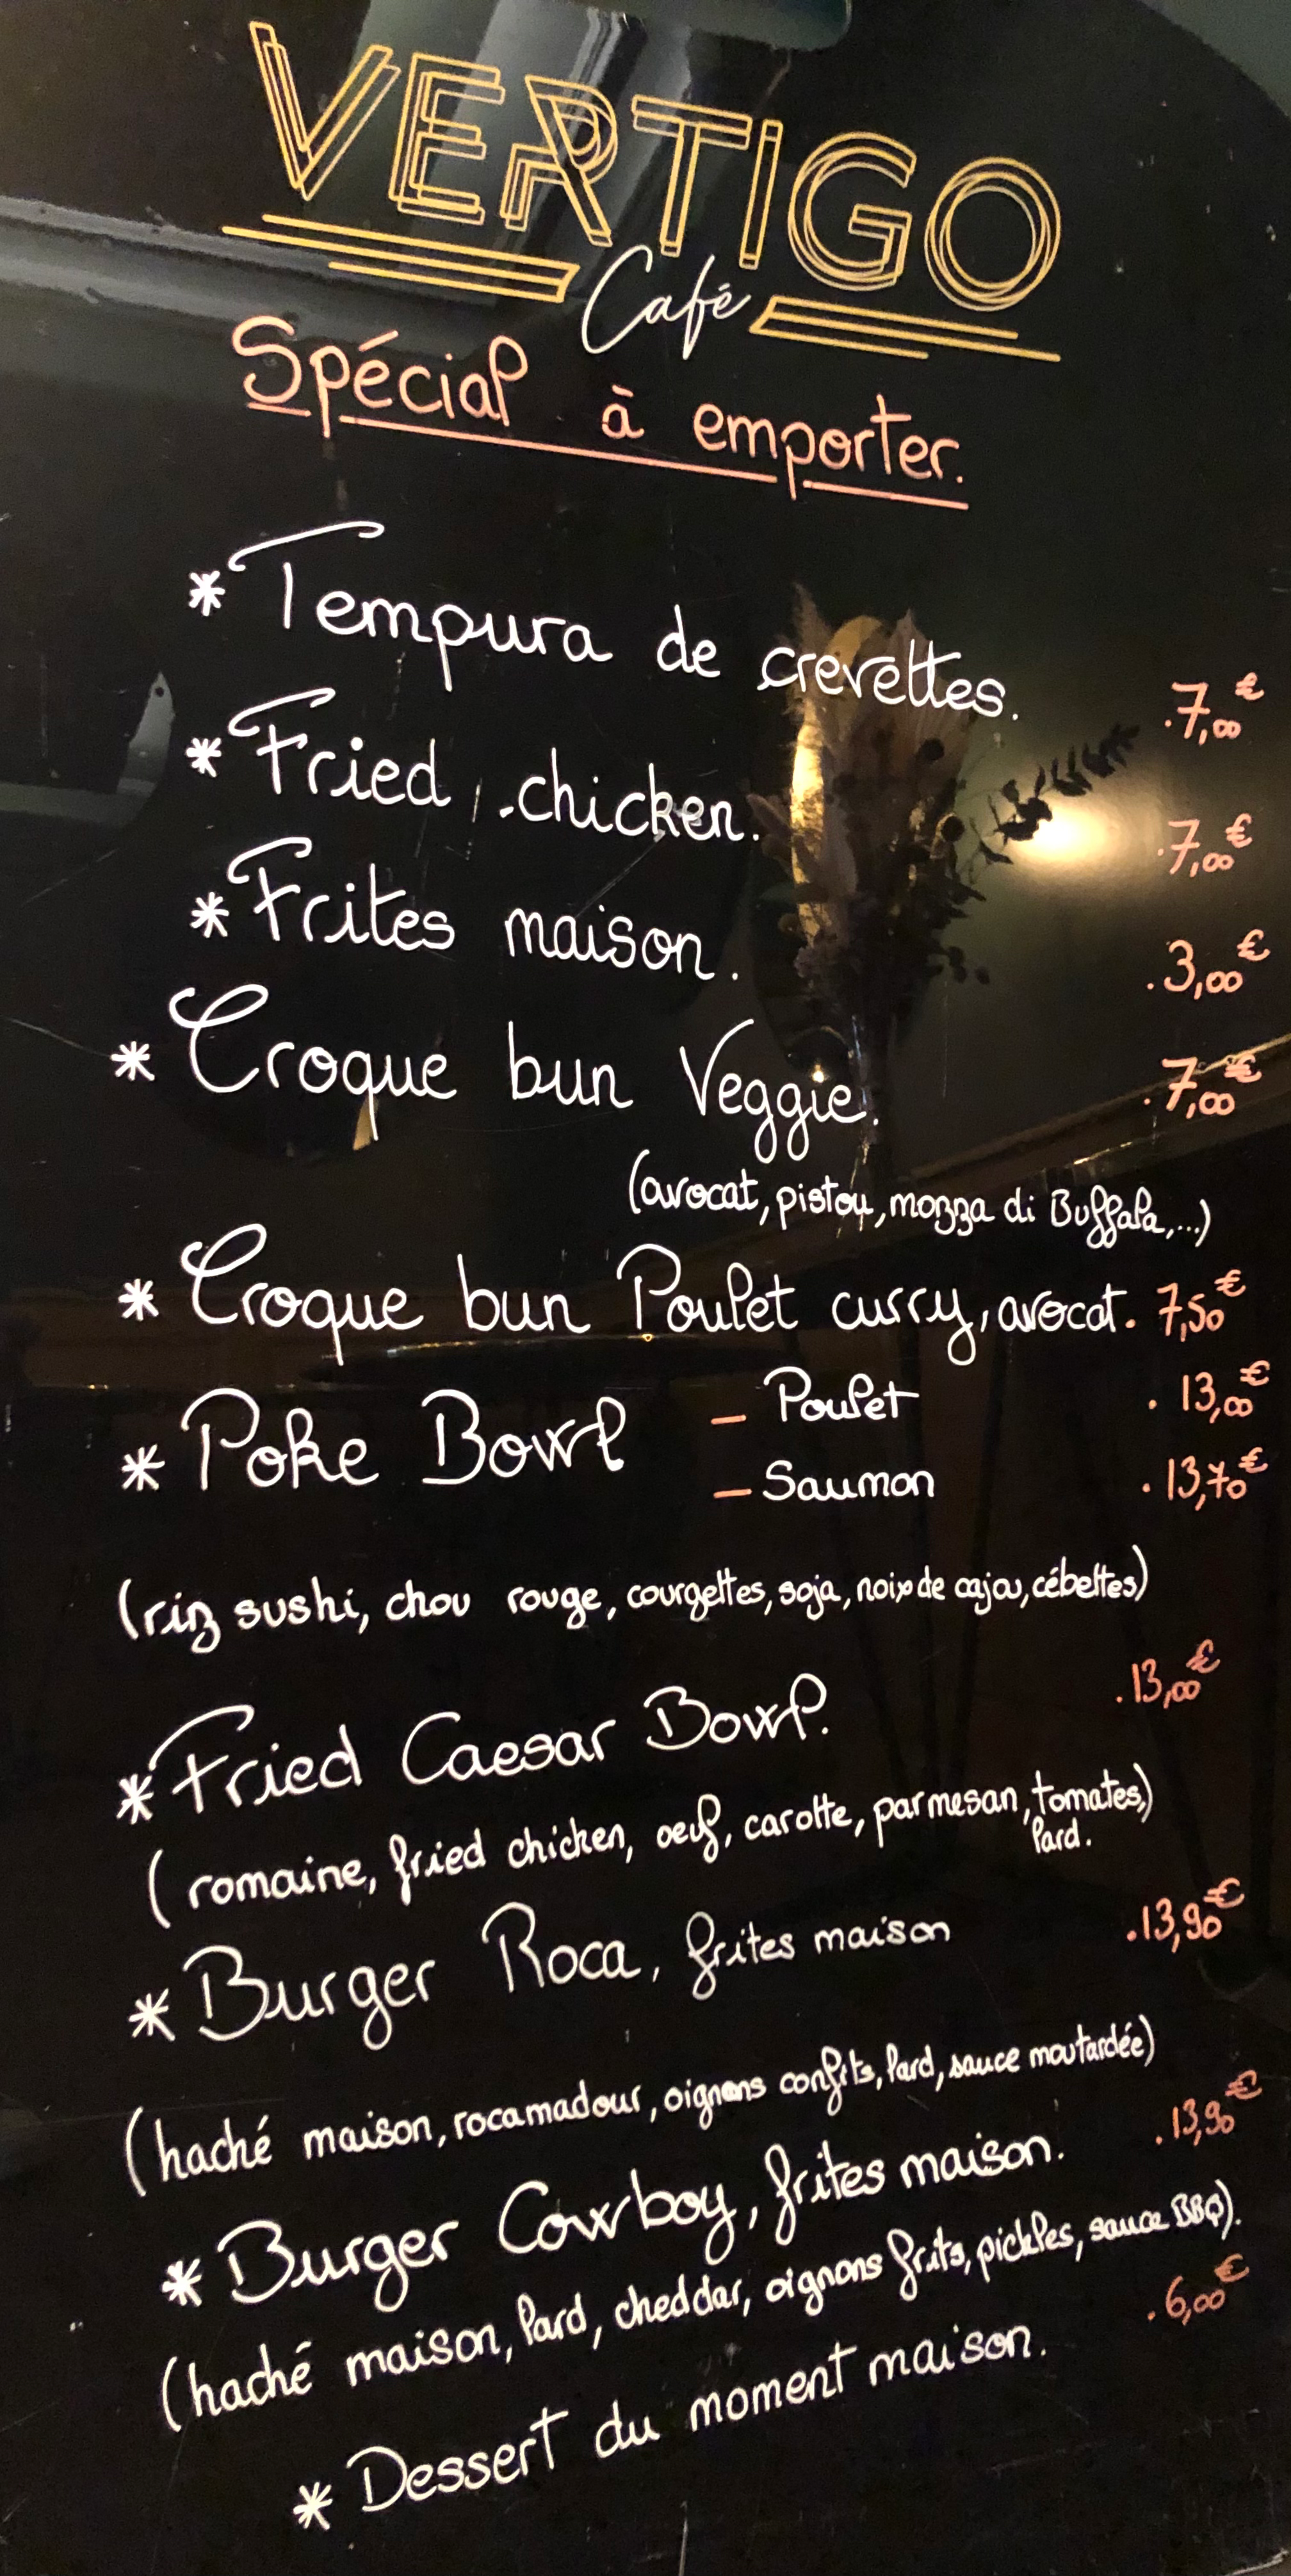 VERTIGO
Café
Spécial à emporter.
* Tempura de crevettes. .7,00€
* Fried chicken. .7,00€
* Frites maison. .3,00€
* Croque bun Veggie. .7,00€
(avocat, pistou, mozza di Buffala,...)
* Croque bun Poulet curry, avocat. 7,50€
* Poke Bowl – Poulet . 13,00€
– Saumon . 13,70€
(riz sushi, chou rouge, courgettes, soja, noix de cajou, cébettes)
* Fried Caesar Bowl. .13,00€
(romaine, fried chicken, oeuf, carotte, parmesan, tomates,)
lard.
* Burger Roca, frites maison .13,90€
(haché maison, rocamadour, oignons confits, lard, sauce moutardée)
* Burger Cowboy, frites maison. .13,90€
(haché maison, lard, cheddar, oignons frits, pickles, sauce BBQ).
* Dessert du moment maison. .6,00€